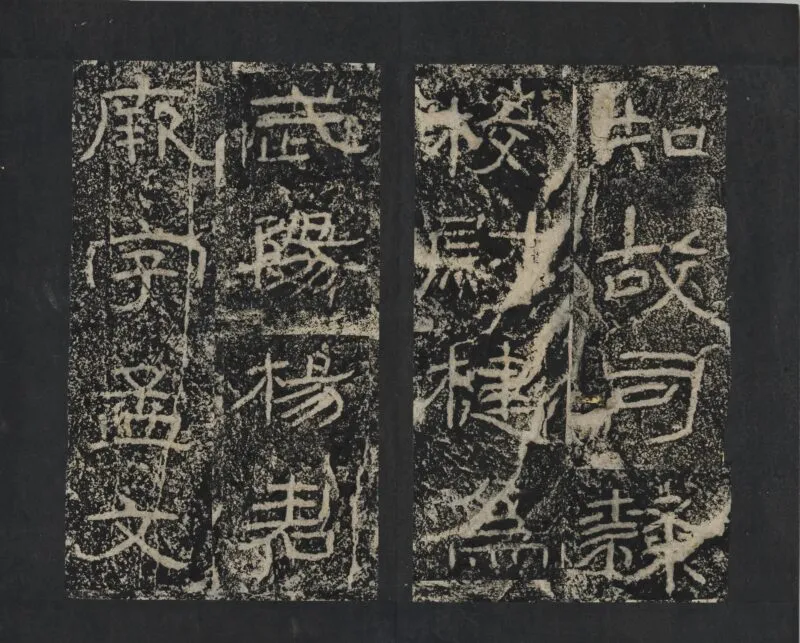 知故司隸
校尉楗為
武陽楊君
厥字孟文